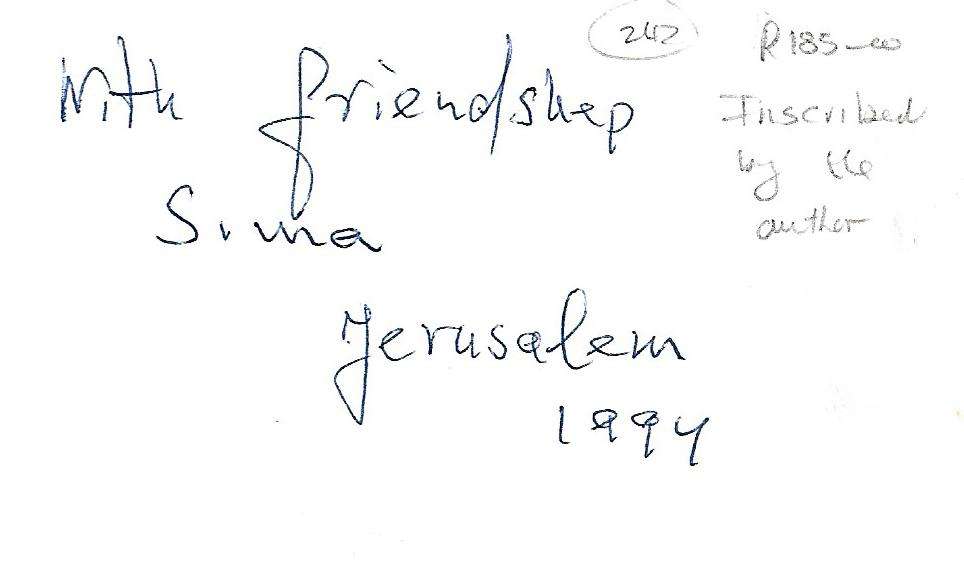 With friendship
Sima
Jerusalem
1994
242
R185-00
Inscribed
by the
author